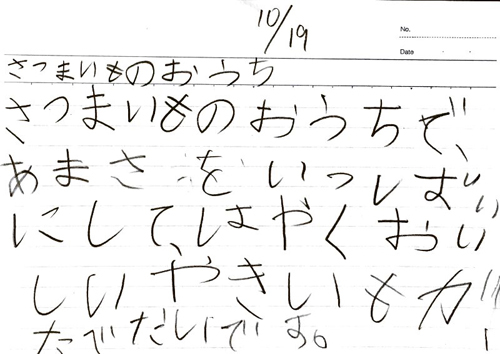 10/19
No.
Date
さつまいものおうち
さつまいものおうちで、
あまさをいっしょ
にして、はやくおい
しいやきいもが
たべたいです。